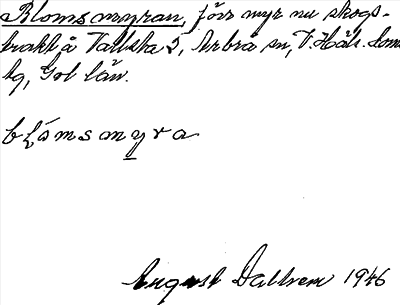 Blomsmyran, förr myr nu skogs-
trakt å Vallsta 5, Arbrå sn, V. Häls. doms
hg, Gbl län.
blomsmyra
August Dallrem 1946